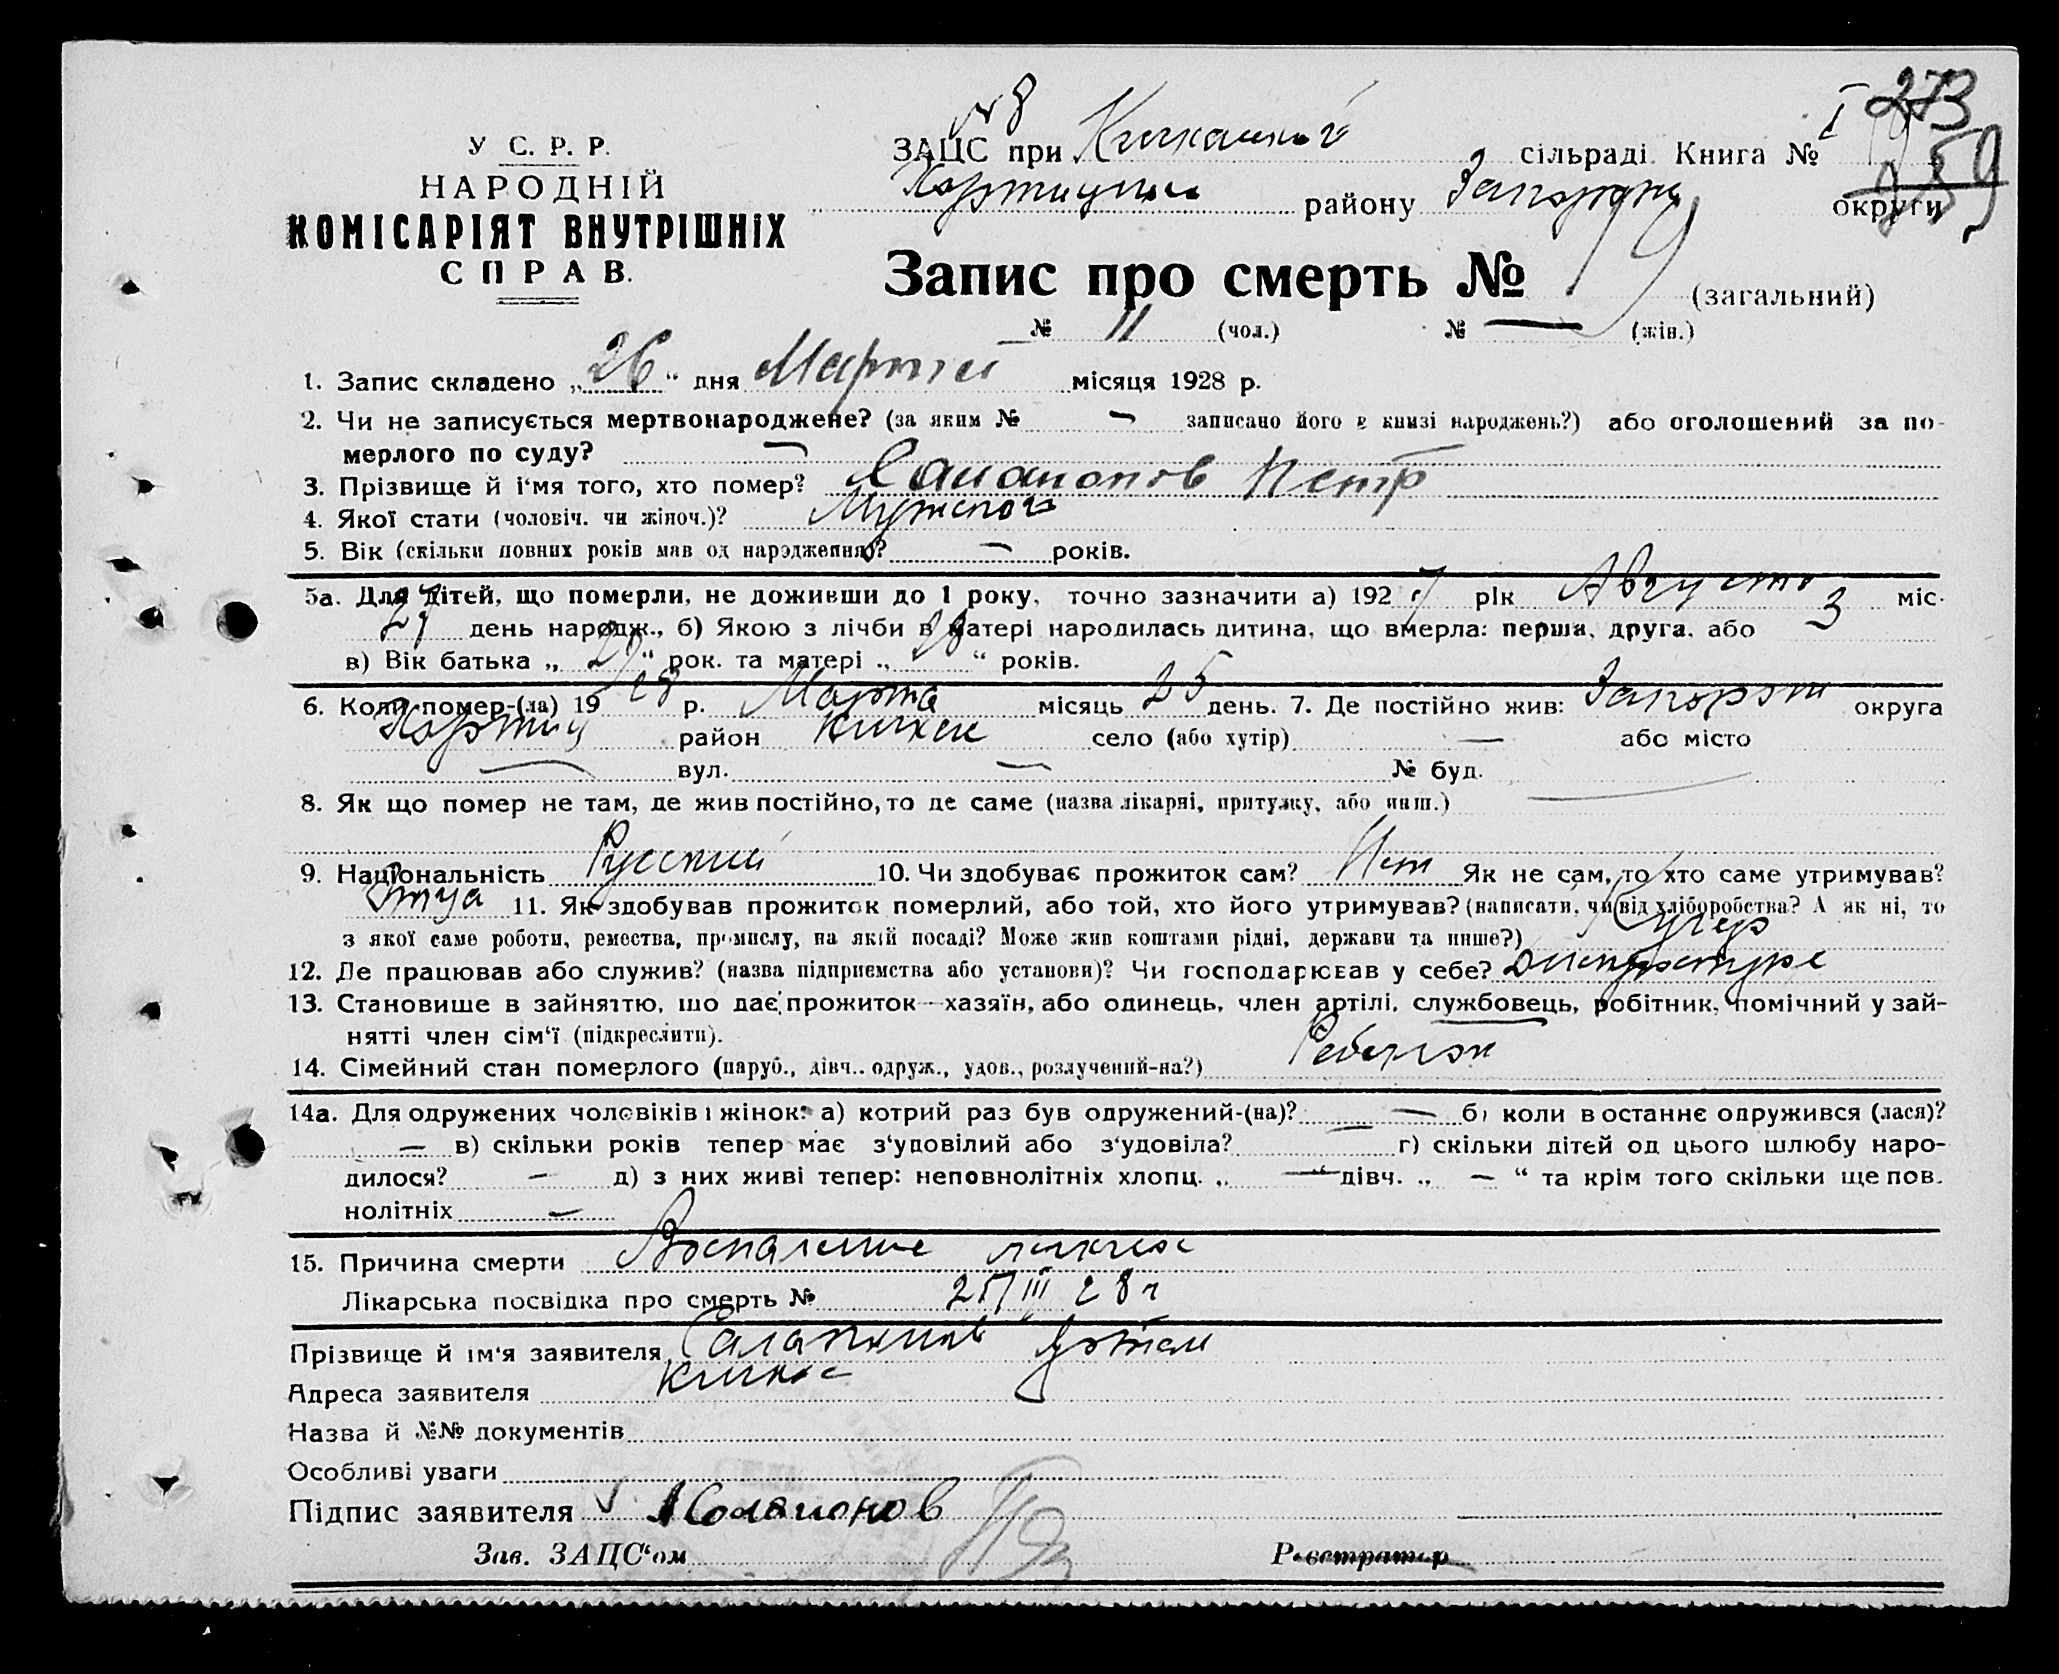 № 8
У С. Р. Р.
НАРОДНІЙ
КОМІСАРІЯТ ВНУТРІШНІХ
СПРАВ.
ЗАЦС при сільраді. Книга № I 273
району округи 59
Запис про смерть № 19 (загальний)
№ 11 (чол.) № — (жін.)
1. Запис складено „ 26 “ дня Марта місяця 1928 р.
2. Чи не записується мертвонароджене? (за яким № — записано його в книзі народжень?) або оголошений за по-
мерлого по суду? —
3. Прізвище й і‘мя того, хто помер? Петр
4. Якої стати (чоловіч. чи жіноч.)? Мужского
5. Вік (скільки повних років мав од народження)? — років.
5а. Для дітей, що померли, не доживши до 1 року, точно зазначити а) 192 7 рік Августа міс.
27 день народж., б) Якою з лічби в матері народилась дитина, що вмерла: перша, друга, або 3
в) Вік батька „ “ рок. та матері „ 28 “ років.
6. Коли помер-(ла) 19 28 р. Марта місяць 25 день. 7. Де постійно жив: Запорож округа
Хортиц район Кичкас село (або хутір) — або місто
— вул. — № буд.
8. Як що помер не там, де жив постійно, то де саме (назва лікарні, притулку, або инш.) —
9. Національність Русский 10. Чи здобуває прожиток сам? Нет Як не сам, то хто саме утримував?
Отца 11. Як здобував прожиток померлий, або той, хто його утримував? (написати, чи від хліборобства? А як ні, то
з якої саме роботи, ремества, промислу, на якій посаді? Може жив коштами рідні, держави та инше?) Кучер
12. Де працював або служив? (назва підприємства або установи)? Чи господарював у себе?
13. Становише в зайняттю, що дає прожиток—хазяїн, або одинець, член артілі, службовець, робітник, помічний у зай-
нятті член сім‘ї (підкреслити).
14. Сімейний стан померлого (паруб., дівч.. одруж., удов., розлучений-на?) Ребенок
14а. Для одружених чоловіків і жінок: а) котрий раз був одружений-(на)? — б) коли в останнє одружився (лася)?
— в) скільки років тепер має з‘удовілий або з‘удовіла? — г) скільки дітей од цього шлюбу наро-
дилося? — д) з них живі тепер: неповнолітніх хлопц. „ — “ дівч. „ — “ та крім того скільки ще пов.
нолітніх —
15. Причина смерти Воспаление легких
Лікарська посвідка про смерть № 25/III 28 г
Прізвище й ім‘я заявителя
Адреса заявителя Кичкас
Назва й №№ документів
Особливі уваги
Підпис заявителя
Зав. ЗАЦС‘ом Реєстратор